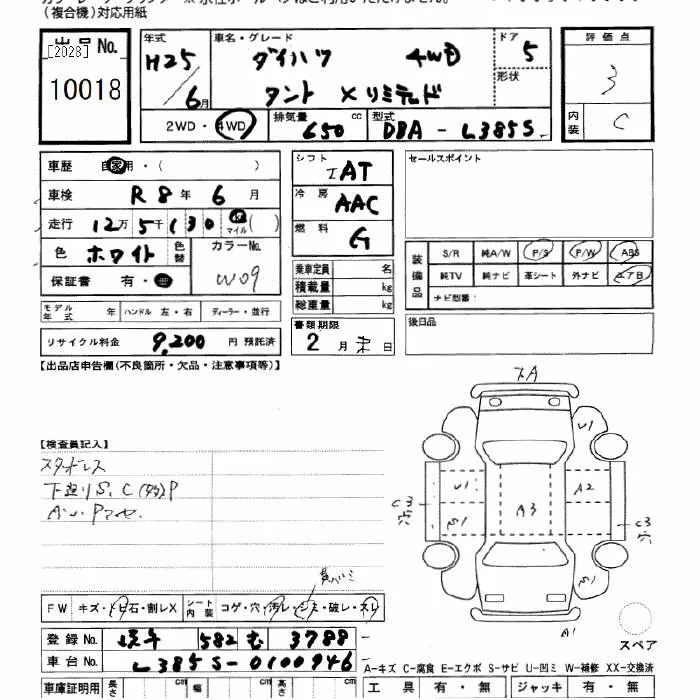 (複合機)対応用紙
出品No. [2028] 10018
年式 H25/6月
車名・グレード ダイハツ 4WD
タント Xリミテッド
ドア 5
形状
2WD・4WD
排気量 650 cc
型式 DBA-L385S
評価点 3
内装 C
車歴 自家用・( )
車検 R8年6月
走行 12万5千130 km マイル ( )
色 ホワイト 色替 カラーNo. W09
保証書 有・無
モデル年式 年 ハンドル 左・右 ディーラー・並行
リサイクル料金 9,200 円 預託済
シフト IAT
冷房 AAC
燃料 G
乗車定員 名
積載量 kg
総重量 kg
書類期限
2月末日
セールスポイント
装備品 S/R 純A/W P/S P/W ABS
純TV 純ナビ 革シート 外ナビ エアB
ナビ型番:
後日品
【出品店申告欄(不良箇所・欠品・注意事項等)】
【検査員記入】
スタッドレス
下廻りS、C
FW キズ・トビ石・割レX シート内装 コゲ・穴・汚レ・シミ・破レ・スレ
登録No. 岐阜 582 む 3788
車台No. L385S-0100946
車庫証明用 長さ cm 幅 cm 高さ cm
A
U1
U1
A2
S1
A3
C3
穴
C3
穴
S1
A1
スペア
A-キズ C-腐食 E-エクボ S-サビ U-凹ミ W-補修 XX-交換済
工具 有・無 ジャッキ 有・無